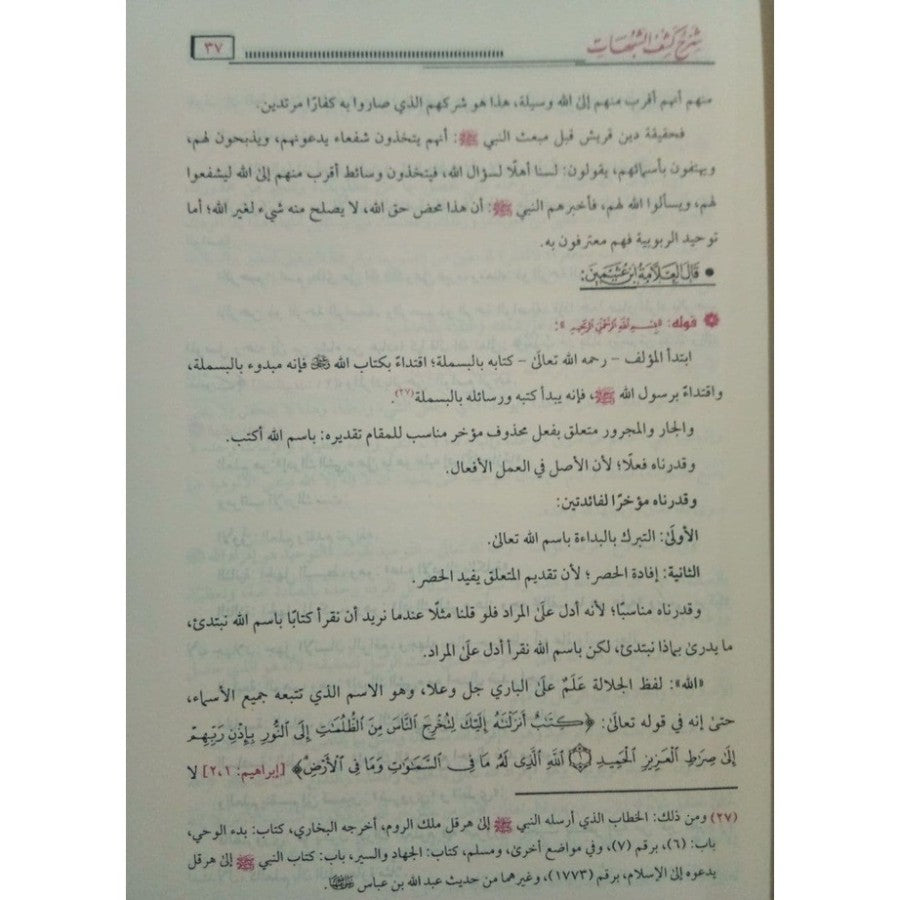 شرح كشف الشبهات
٣٧
منهم أنهم أقرب منهم إلى الله وسيلة، هذا هو شركهم الذي صاروا به كفارًا مرتدين.
فحقيقة دين قريش قبل مبعث النبي ﷺ: أنهم يتخذون شفعاء يدعونهم، ويذبحون لهم،
ويهتفون بأسمائهم، يقولون: لسنا أهلًا لسؤال الله، فيتخذون وسائط أقرب منهم إلى الله ليشفعوا
لهم، ويسألوا الله لهم، فأخبرهم النبي ﷺ: أن هذا محض حق الله، لا يصلح منه شيء لغير الله؛ أما
توحيد الربوبية فهم معترفون به.
• قال العلامة ابن عثيمين:
قوله: «بسم الله الرحمن الرحيم»:
ابتدأ المؤلف - رحمه الله تعالى - كتابه بالبسملة؛ اقتداءً بكتاب الله ﷻ فإنه مبدوء بالبسملة،
واقتداءً برسول الله ﷺ، فإنه يبدأ كتبه ورسائله بالبسملة(٢٧).
والجار والمجرور متعلق بفعل محذوف مؤخر مناسب للمقام تقديره: باسم الله أكتب.
وقدرناه فعلًا؛ لأن الأصل في العمل الأفعال.
وقدرناه مؤخرًا لفائدتين:
الأولى: التبرك بالبداءة باسم الله تعالى.
الثانية: إفادة الحصر؛ لأن تقديم المتعلق يفيد الحصر.
وقدرناه مناسبًا؛ لأنه أدل على المراد فلو قلنا مثلًا عندما نريد أن نقرأ كتابًا باسم الله نبتدئ،
ما يدرى بماذا نبتدئ، لكن باسم الله نقرأ أدل على المراد.
«الله»: لفظ الجلالة عَلَمٌ على الباري جل وعلا، وهو الاسم الذي تتبعه جميع الأسماء،
حتى إنه في قوله تعالى: ﴿كِتَٰبٌ أَنزَلْنَٰهُ إِلَيْكَ لِتُخْرِجَ ٱلنَّاسَ مِنَ ٱلظُّلُمَٰتِ إِلَى ٱلنُّورِ بِإِذْنِ رَبِّهِمْ
إِلَىٰ صِرَٰطِ ٱلْعَزِيزِ ٱلْحَمِيدِ ۝١ ٱللَّهِ ٱلَّذِى لَهُۥ مَا فِى ٱلسَّمَٰوَٰتِ وَمَا فِى ٱلْأَرْضِ﴾ [إبراهيم: ٢،١] لا
(٢٧) ومن ذلك: الخطاب الذي أرسله النبي ﷺ إلى هرقل ملك الروم، أخرجه البخاري، كتاب: بدء الوحي،
باب: (٦)، برقم (٧)، وفي مواضع أخرى، ومسلم، كتاب: الجهاد والسير، باب: كتاب النبي ﷺ إلى هرقل
يدعوه إلى الإسلام، برقم (١٧٧٣)، وغيرهما من حديث عبد الله بن عباس رضي الله عنهما.